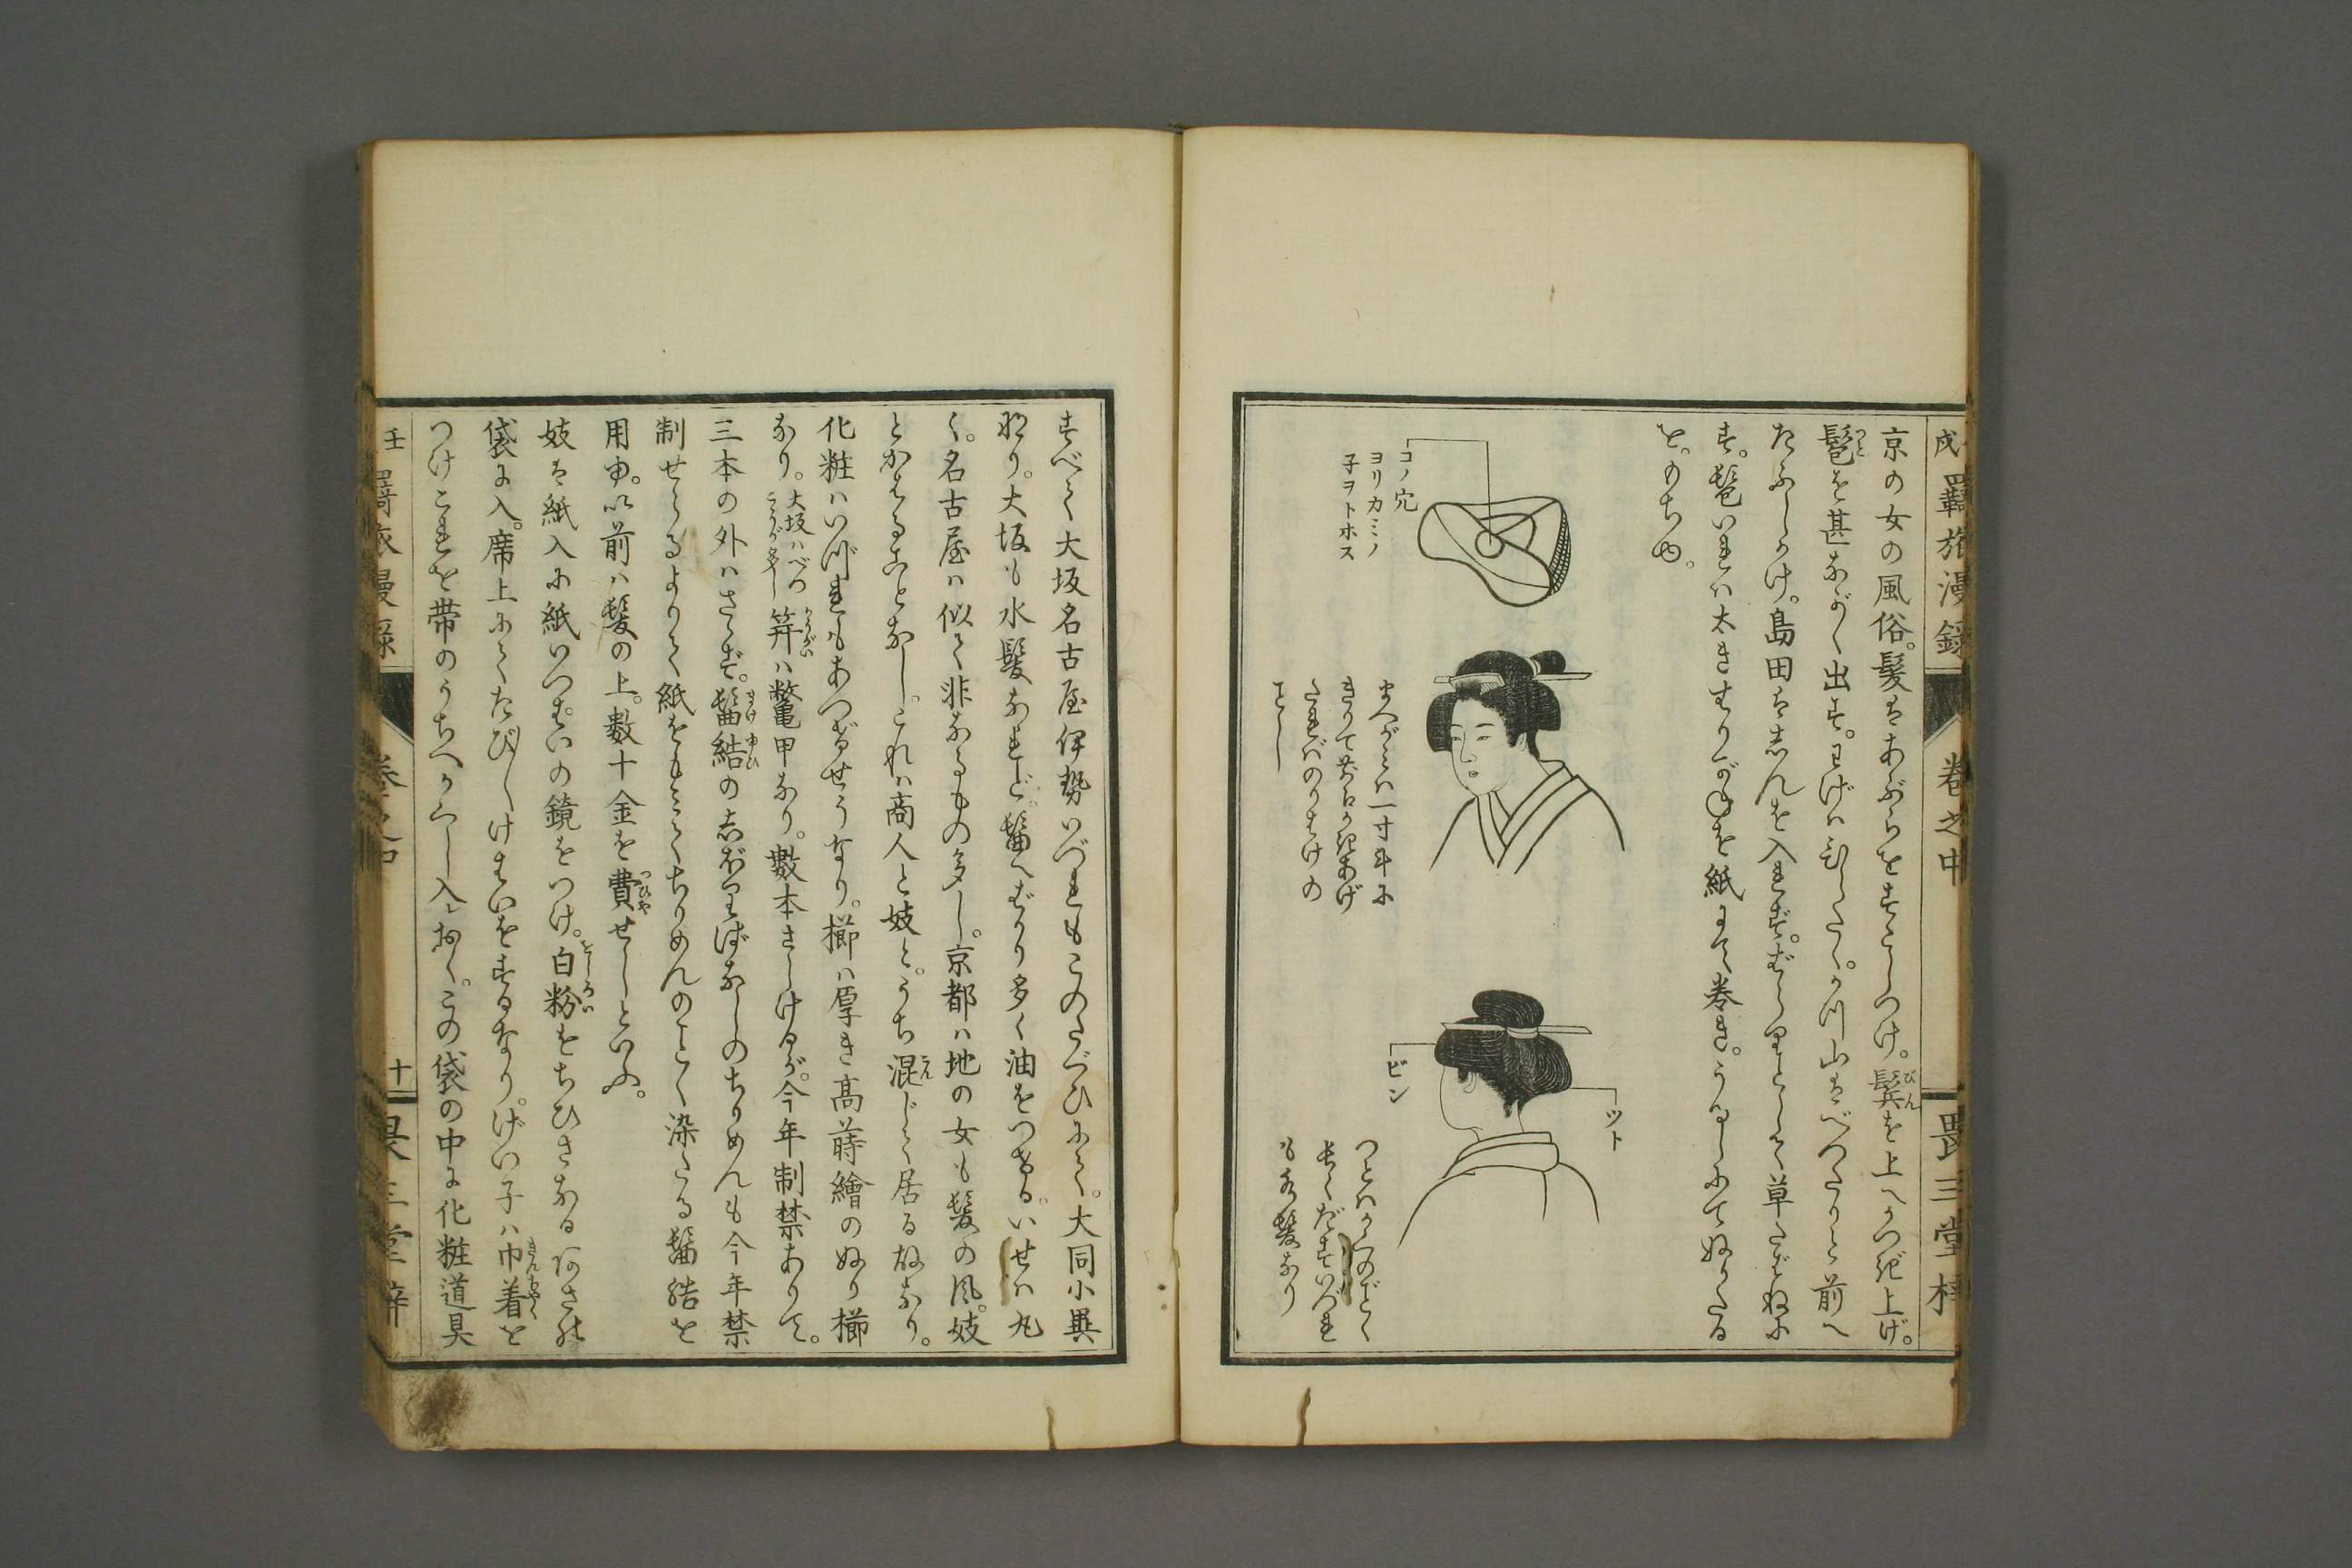 戌羇旅漫録 巻之中 畏三堂梓
京の女の風俗。髪はあぶらをすこしつけ。鬢を上へかつき上げ。
髱を甚ながく出す。わげはひらたく。か川山はべつたりと前へ
たふしかけ。島田はしんを入れず。
す。髱いれは太きはりがねを紙にて巻き。うるしにてぬりたる
を。もちゆ。
コノ穴
ヨリカミノ
子ヲトホス
まへがみは一寸斗に
きりて
たればのりつけの
ごとし
ビン
ツト
つとはかくのごとく
ながくだすいづれ
も水髪なり
すべて大坂名古屋伊勢いづれもこのたぐひにて。大同小異
なり。大坂も水髪なれど。髷へばかり多く油をつける。いせは丸
く。名古屋は似て非なるもの多し。京都は地の女も髪の風。妓
とかはることなし。これは商人と妓と。うち混じて居る故なり。
化粧はいづれもあつげせうなり。櫛は厚き高蒔繪のぬり櫛
なり。大坂はべつかうが多し 笄は鼈甲なり。數本さしけるが。今年制禁ありて。
三本の外はささず。髷結のしぼりばなしのちりめんも今年禁
制せらるるよりて紙をもみてちりめんのごとく染たる髷結を
用ゆ。以前は髪の上。數十金を費せしといふ。
妓は紙入に紙いつぱいの鏡をつけ。白粉をちひさなる
袋に入。席上にてたび〳〵けはいをするなり。げい子は巾着を
つけこれを帯のうちへかくし入れおく。この袋の中に化粧道具
壬 羇旅漫録 巻之中 十一 畏三堂梓